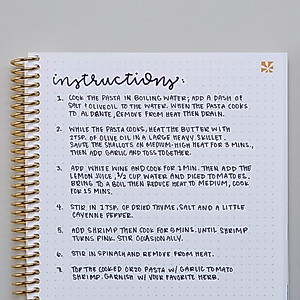 instructions:
1. COOK THE PASTA IN BOILING WATER; ADD A DASH OF
SALT & OLIVE OIL TO THE WATER. WHEN THE PASTA COOKS
TO AL DANTE, REMOVE FROM HEAT THEN DRAIN.
2. WHILE THE PASTA COOKS, HEAT THE BUTTER WITH
2TBSP. OF OLIVE OIL IN A LARGE HEAVY SKILLET.
SAUTE THE SHALLOTS ON MEDIUM-HIGH HEAT FOR 3 MINS.,
THEN ADD GARLIC AND TOSS TOGETHER.
3. ADD WHITE WINE AND COOK FOR 1 MIN. THEN ADD THE
LEMON JUICE, 1/2 CUP WATER AND DICED TOMATOES.
BRING TO A BOIL THEN REDUCE HEAT TO MEDIUM, COOK
FOR 15 MINS.
4. STIR IN 2 TSP. OF DRIED THYME, SALT AND A LITTLE
CAYENNE PEPPER.
5. ADD SHRIMP THEN COOK FOR 6 MINS. UNTIL SHRIMP
TURNS PINK. STIR OCCASIONALLY.
6. STIR IN SPINACH AND REMOVE FROM HEAT.
7. TOP THE COOKED ORZO PASTA W/ GARLIC TOMATO
SHRIMP. GARNISH W/ YOUR FAVORITE HERB.